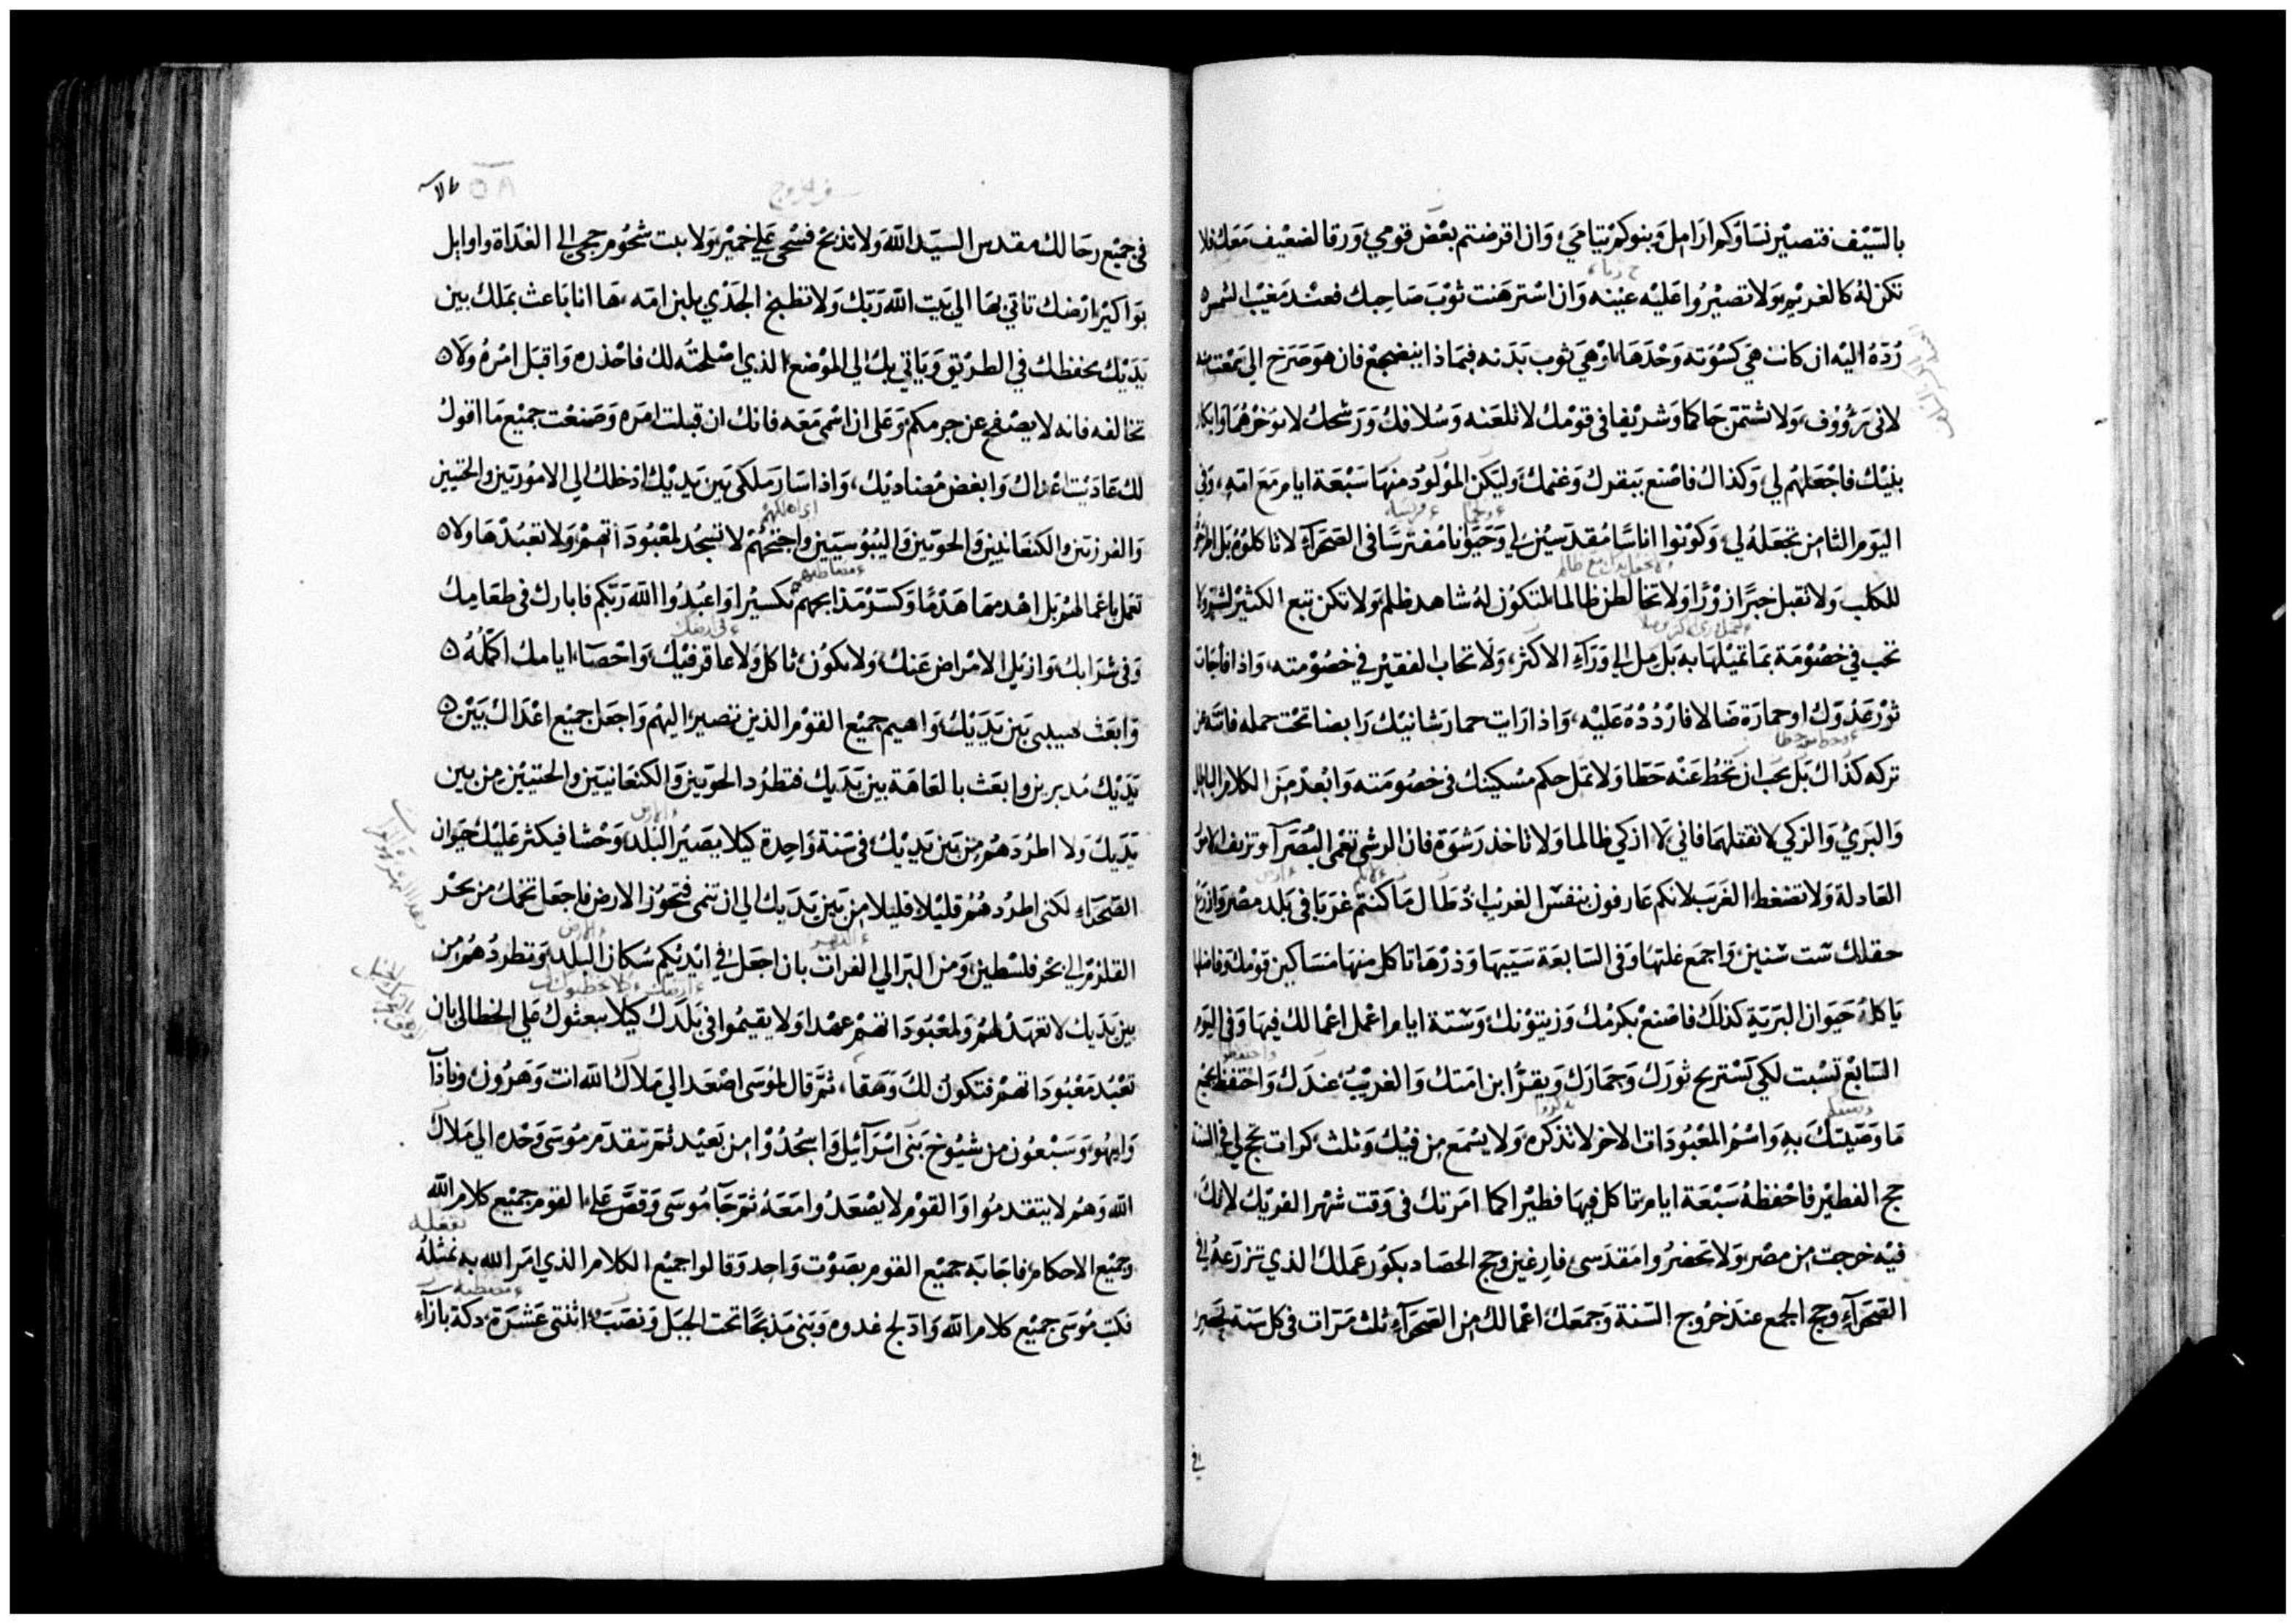 بالسَّيْف فتصيْر نسَاوكم ارَامِل وَبنوكمْ يتَامَي، وَان اقرضتم بعْض قومِي، وَرقا لضعْيف مَعَك فلا
تكن لهُ كالغريْم وَلا تصيْرُوا عَليْه عيْنه وَان استرهَنت ثوْبَ صَاحِبك فعنْد مَغيْب الشمس
رُدّهُ اليْه ان كانت هيَ كسْوَته وَحْدَهَا، اوْهيَ ثوب بَدَنه فبمَاذا ينضجعْ فان هوَ صَرَخ الي سَمعْت منه
لاني رَؤُوف، وَلا تشتمن حَاكما وَشريْفا في قوْمك لا تلعَنه وَسُلافك وَرَشحك لا توَخرْهُمَا وَابكار
بنيْك فاجْعَلهُم لي، وَكذاك فاصْنع ببَقرك وَغنمك وَليَكن المؤْلوُد منهَا سَبْعَة ايام مَعَ امّهِ، وَفي
اليَوم الثامن تجعَلهُ لي، وَكوُنوا اناسًا مُقدسيْن لي وَحَيَوانا مُفترسًا في الصَّحَرآءِ لا تاكلوُهُ بَل اطرَحُوهُ
للكلب وَلا تقبل خبَرًا زوْرًا وَلا تخالطن ظالما لتكوُن لهُ شاهد ظلم وَلا تكن تبع الكثيْر لشرّ وَلا
تجب في خصُوْمَة بمَا تميْلهَا به بَل مِل الي وَرَآءِ الاكثر، وَلا تحاب الفقيْر في خصُوْمته، وَاذا فاجَات
ثوْر عَدوّك او حمارَهُ ضَالا فارْدُدْهُ عَليْه، وَاذا رَايت حمار شانيْك رَابضا تحْت حمله فانته عن
تركه كذاك بَل يجب ان تحُط عَنْه حَطا وَلا تمَل حكم مسْكينك في خصُومَته وَابْعدْ مِنَ الكلام الباطل
وَالبَريُ وَالزكي لا تقتلهمَا فاني لا ازكي ظالما وَلا تاخذ رَشوَة فان الرشي تعْمي البُصَرآءَ وتزيف الامُور
العَادلة وَلا تضغط الغَرَيب لانكم عَارفون بنفس الغريْب اذ طَال مَا كنتم غرَبَا في بَلد مصْر وَازرَع
حقلك ست سنين وَاجمَع غلتهَا وَفي السَّابعَة سَيبهَا وَذرْهَا تاكل منهَا مَسَاكين قوْمك وَفاضلها
يَاكلهُ حَيَوان البَريّة كذلك فاصْنعْ بكرمْك وَزيتوْنك وَستة ايام اعْمل اعْمالك فيهَا وَفي اليَوم
السَّابعْ تسْبت لكي يسْتريح ثورَك وَحمَارَك وَيقرّ ابن امَتك وَالغريْبُ عندَك وَاحتفظ بجميع
مَا وَصّيتك بهِ وَاسْمُ المعْبُودَات الاخر لا تذكره وَلا يسْمَع مِن فيْك وَثلث كرات تحج لي في السَّنة
حج الفطيْر فاحْفظهُ سَبْعَة ايام تاكل فيهَا فطيْرا كما امَرتك في وَقت شهْر الفريْك لانك
فيْه خرَجت مِن مصْر وَلا تحضرُوا مَقدسي فارغين وحج الحصَاد بكوْر عَملك الذي تزرَعهُ في
الصَّحْرَآءِ وحج الجمع عند خرُوج السّنة وَجمعَك اعْمالك مِن الصّحْرَآءِ ثلث مَرات في كل سَنة يحضر
في
في الخروج
٥٨
في جميْع رجَالك مقدس السيّد اللّه وَلا تذبح فسْحي عَلي خميْر وَلا يبت شحُوم حجي الي الغدَاة واوايل
بوَاكيْر ارْضك تاتي بهَا الي بَيت اللّه رَبك وَلا تطبخ الجدْي بلبن امّه، هَا انا بَاعث بملك بين
يَدَيْك يحفظك في الطريْق وَيَاتي بك الي الموْضع الذي اصْلحتُه لك فاحْذره وَاقبَل امْرهُ ولا
تخالفه فانه لا يصْفح عن جرمكم وَعَلي ان اسْمي مَعَه فانك ان قبلت امَره وَصنعْت جميْع مَا اقول
لك عَادَيْت اعْداك وَابغض مُضاديْك، وَاذا سَارَ مَلكي بَين يَديْك ادخلك الي الامُوريّين والحتيين
وَالفرزيّن والكنعَانيين وَالحويين وَاليبُوسيّين وَاجتحْهُمْ لا تسجُد لمعْبُودَاتهمْ وَلا تعْبُدْهَا وَلا
تعْمل باعْمالهمْ بَل اهْدمهَا هَدْمًا وَكسّرْ مَذابحَهمْ تكسيْرا وَاعْبُدُوا اللّه رَبكم فابارك في طعَامِك
وَفي شرَابك وَازيْل الامْراض عَنك وَلا يكوُن ثاكل وَلا عاقر فيْك وَاحْصَاء ايامك اكملهُ
وَابعَث هيبتي بَين يَدَيْك وَاهيم جميْع القوْم الذين تصير اليْهم وَاجعَل جميْع اعْدَاك بَيْن
يَدَيْك مُدبرين وابعَث بالعَاهَة بين يَدَيك فتطرُد الحويّين وَالكنعَانيين والحتيين مِن بين
يَدَيك وَلا اطرُدَهُمْ مِن بَين يَديْك في سَنة وَاحِدة كيلا يصَيْر البَلد وَحْشا فيكثر عَليْك حيَوان
الصّحرَاءِ لكني اطرُدهُمْ قليْلا قليلا مِن بَين يَدَيك الي ان تنمي فتحوُز الارض فاجعَل تخمك من بحْر
القلزمْ الي بحْر فلسْطين وَمن البَر الي الفرات بان اجعَل في ايْديْكم سُكان البَلد وَتطردُهمْ مِن
بين يَدَيك لا تعْهَدْ لهُمْ وَلمعْبُودَاتهمْ عهْدا وَلا يقيمُوا في بَلدَك كيلا يبعثوُك عَلي الخطا الي بان
تعْبُدَ مَعْبُودَاتهمْ فتكون لكَ وَهَقا، ثمَّ قال لموُسَي اصْعَد الي مَلاك اللّه انت وَهَرُون وَناذآب
وَابيهُو وَسَبْعُون من شيُوخ بَني اسْرَآئيل وَاسْجُدُوْا مِن بَعيْد ثمَّ يتقدّمْ مُوسَي وَحْده الي مَلاك
اللّه وَهُم لا يتقدمُوا وَالقوْم لا يصْعَدُوا مَعَهُ ثمَّ جَآءَ مُوسَي وَقصَّ عَلي القوم جميْع كلام اللّه
وَجميْع الاحكام، فاجَابَه جميْع القوم بصَوْت وَاحِد وَقالوا جميْع الكلام الذي امَر اللّه به نمتثلهُ
فكتبَ مُوسَي جميْع كلام اللّه وَادّلج غدوه وَبَني مَذبحًا تحت الجبَل وَنصَب اثنتي عَشرَة دكة بازآءِ